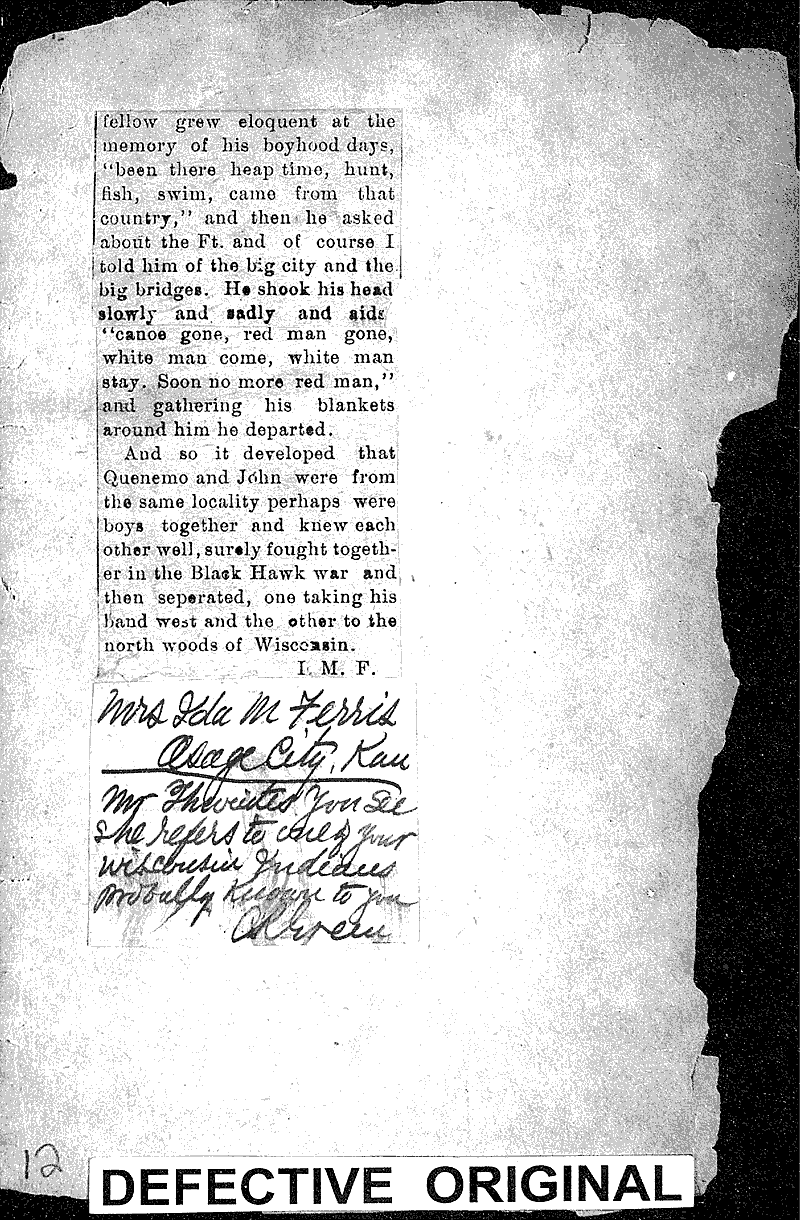 fellow grew eloquent at the
memory of his boyhood days,
“been there heap time, hunt,
fish, swim, came from that
country,” and then he asked
about the Ft. and of course I
told him of the big city and the
big bridges. He shook his head
slowly and sadly and aids
“canoe gone, red man gone,
white man come, white man
stay. Soon no more red man,”
and gathering his blankets
around him he departed.
And so it developed that
Quenemo and John were from
the same locality perhaps were
boys together and knew each
other well, surely fought togeth-
er in the Black Hawk war and
then seperated, one taking his
band west and the other to the
north woods of Wisconsin.
I. M. F.
Mrs Ida M Ferris
Osage City, Kan
Mr Thwaites You See
she refers to one of your
wisconsin Indians
probally Known to you
12
DEFECTIVE ORIGINAL